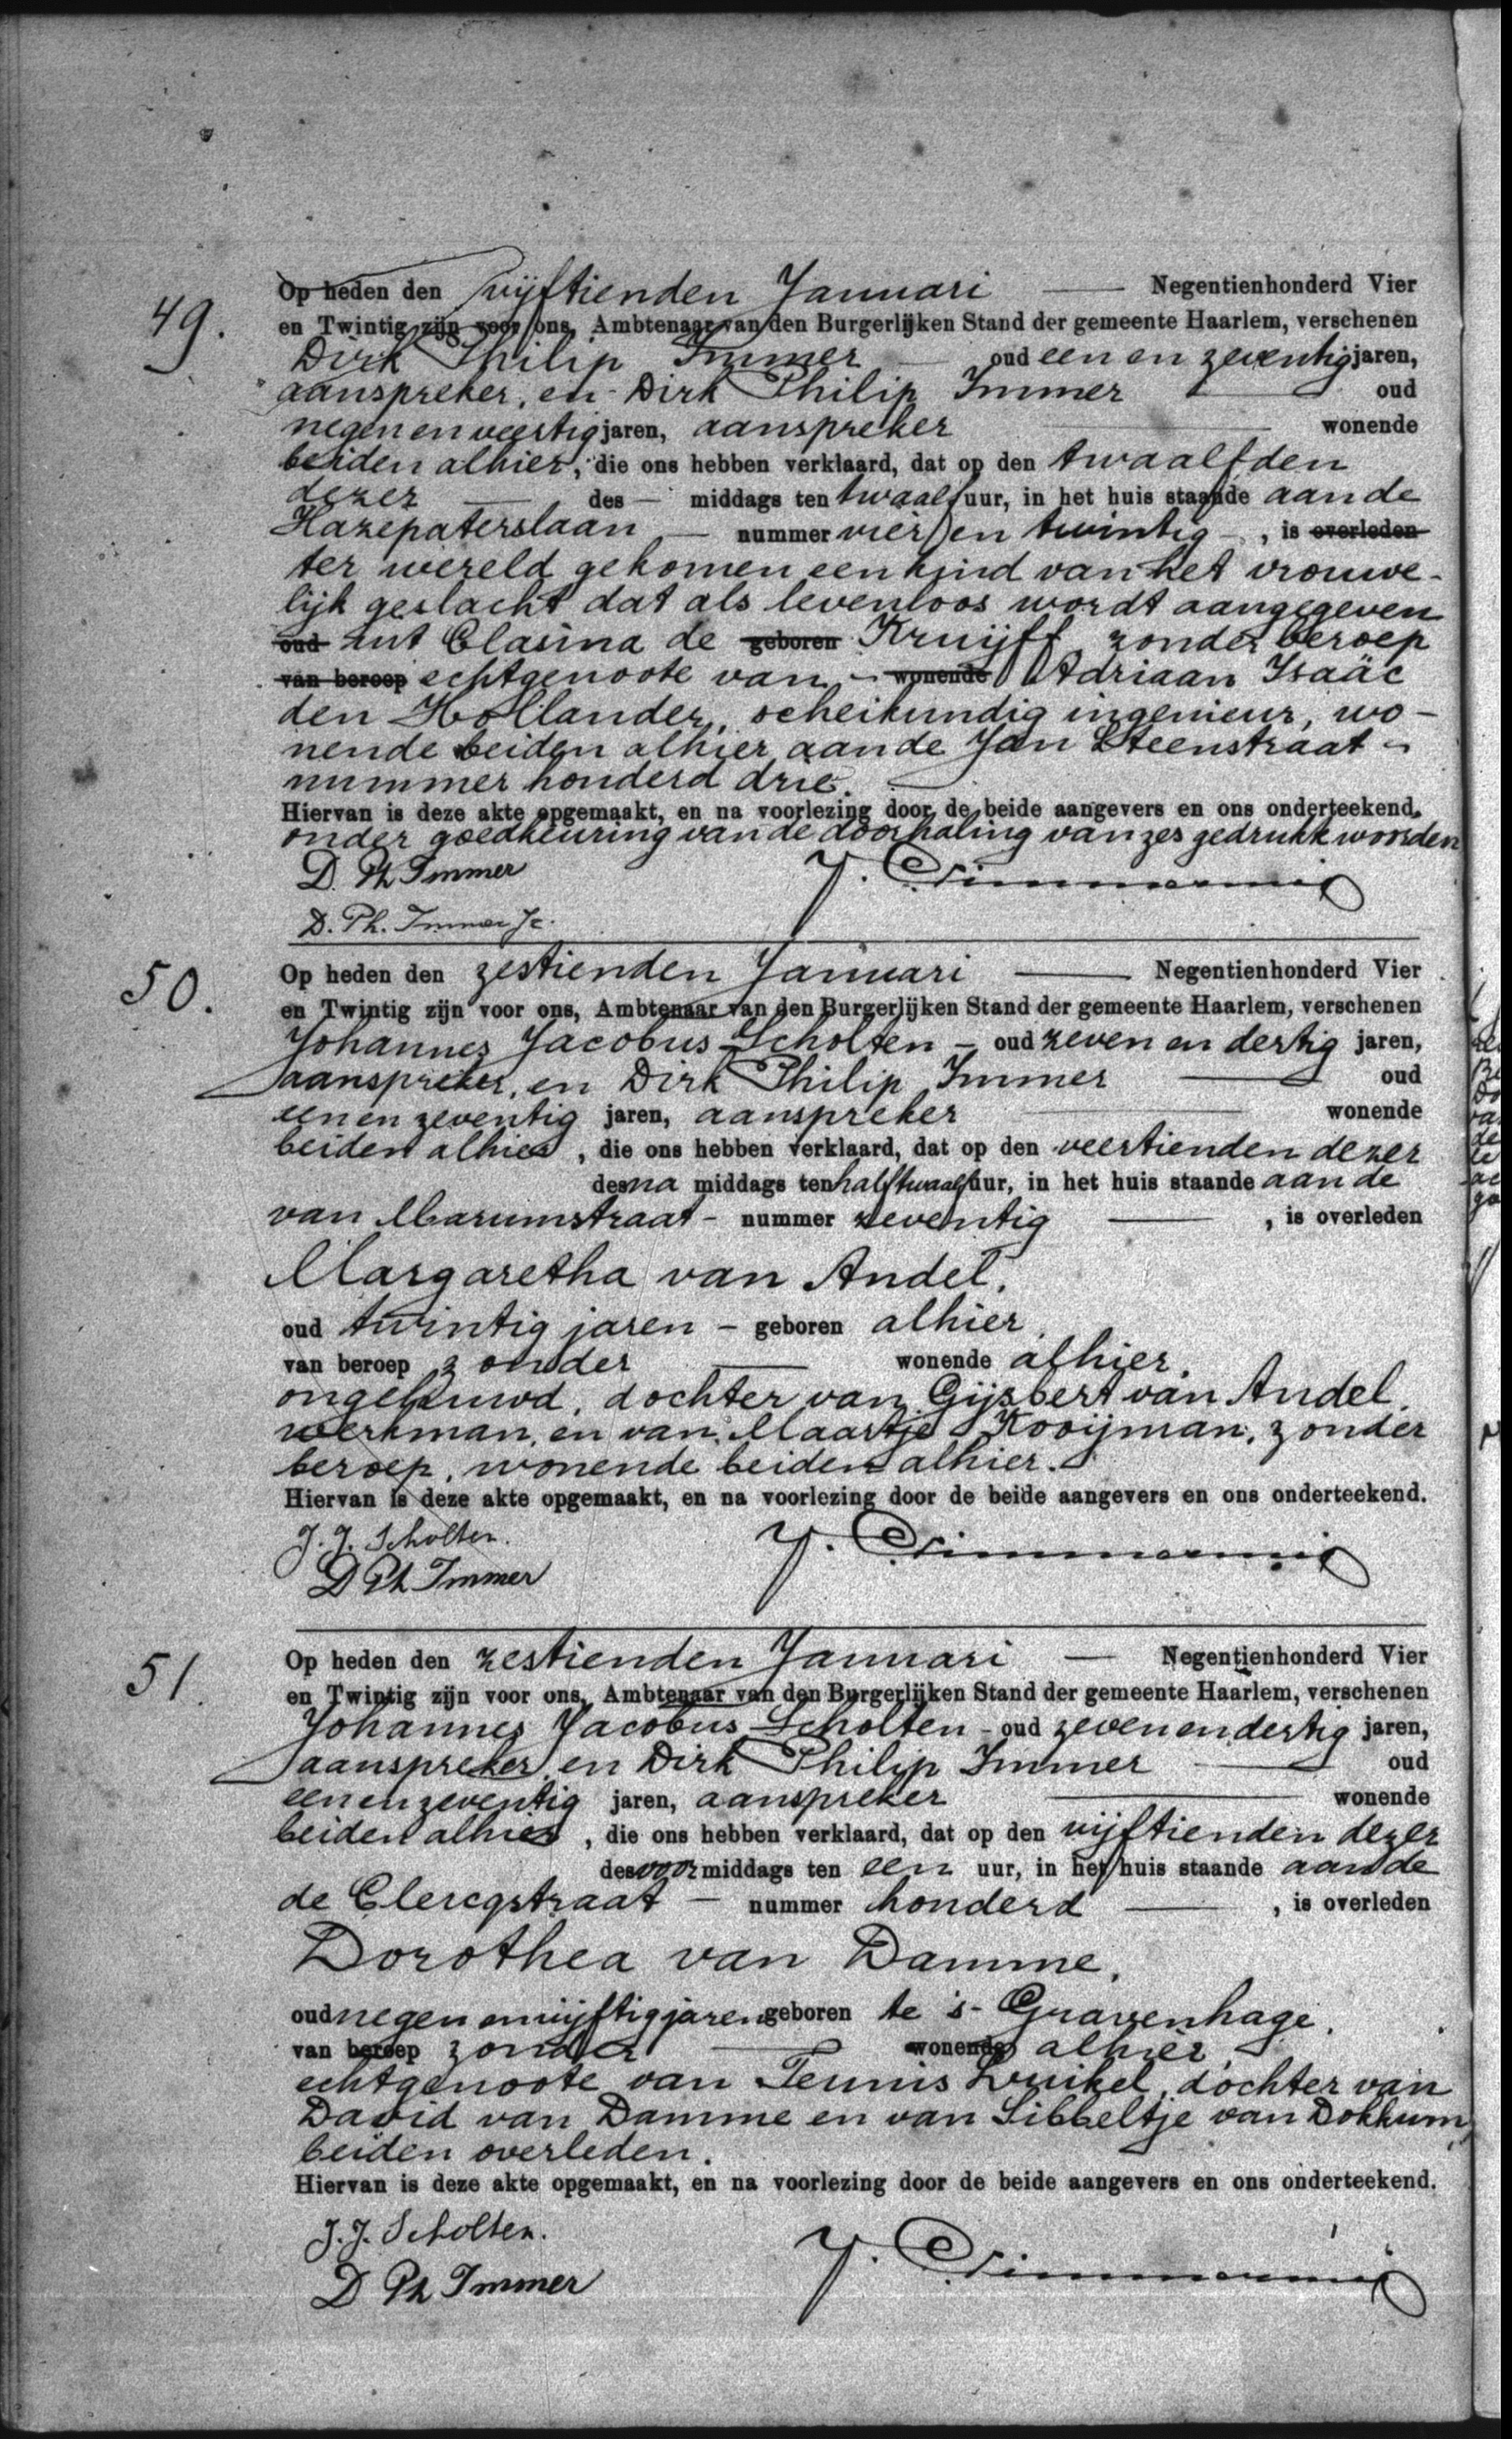 49.
Op heden den vijftienden Januari — Negentienhonderd Vier
en Twintig zijn voor ons, Ambtenaar van den Burgerlijken Stand der gemeente Haarlem, verschenen
Dirk Philip Immer — oud een en zeventig jaren,
aanspreker, en Dirk Philip Immer — oud
negen en veertig jaren, aanspreker — wonende
beiden alhier, die ons hebben verklaard, dat op den twaalfden
dezer — des — middags ten twaalf uur, in het huis staande aan de
Hazepaterslaan — nummer vier en twintig —, is overleden
ter wereld gekomen een kind van het vrouwe-
lijk geslacht dat als levenloos wordt aangegeven
oud uit Clasina de geboren Kruijff zonder beroep
van beroep echtgenoote van - wonende Adriaan Isaäc
den Hollander, scheikundig ingenieur, wo-
nende beiden alhier aan de Jan Steenstraat -
nummer honderd drie.
Hiervan is deze akte opgemaakt, en na voorlezing door de beide aangevers en ons onderteekend.
onder goedkeuring van de doorhaling van zes gedrukte woorden
D. Ph Immer
D. Ph. Immer Jr.
50.
Op heden den zestienden Januari — Negentienhonderd Vier
en Twintig zijn voor ons, Ambtenaar van den Burgerlijken Stand der gemeente Haarlem, verschenen
Johannes Jacobus Scholten - oud zeven en dertig jaren,
aanspreker, en Dirk Philip Immer — oud
een en zeventig jaren, aanspreker — wonende
beiden alhier, die ons hebben verklaard, dat op den veertienden dezer
des na middags ten half twaalf uur, in het huis staande aan de
van Marumstraat - nummer zeventig —, is overleden
Margaretha van Andel,
oud twintig jaren - geboren alhier,
van beroep zonder — wonende alhier,
ongehuwd, dochter van Gijsbert van Andel,
werkman, en van Maartje Kooijman, zonder
beroep, wonende beiden alhier.
Hiervan is deze akte opgemaakt, en na voorlezing door de beide aangevers en ons onderteekend.
J. J. Scholten.
D Ph Immer
51.
Op heden den zestienden Januari — Negentienhonderd Vier
en Twintig zijn voor ons, Ambtenaar van den Burgerlijken Stand der gemeente Haarlem, verschenen
Johannes Jacobus Scholten - oud zeven en dertig jaren,
aanspreker, en Dirk Philip Immer — oud
een en zeventig jaren, aanspreker — wonende
beiden alhier, die ons hebben verklaard, dat op den vijftienden dezer
des voormiddags ten een uur, in het huis staande aan de
de Clercqstraat - nummer honderd —, is overleden
Dorothea van Damme,
oud negen en vijftig jaren geboren te 's-Gravenhage,
van beroep zonder — wonende alhier,
echtgenoote van Teunis Zwikel, dochter van
David van Damme en van Sibbeltje van Dokkum,
beiden overleden.
Hiervan is deze akte opgemaakt, en na voorlezing door de beide aangevers en ons onderteekend.
J. J. Scholten.
D Ph Immer